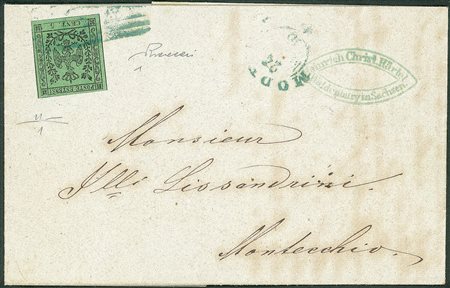 CENT. 5
POSTE ESTENSI
MOD
22
Heinrich Christ. Härtel
Waldenburg in Sachsen
Monsieur
Ille Lissandrini.
Montecchio.